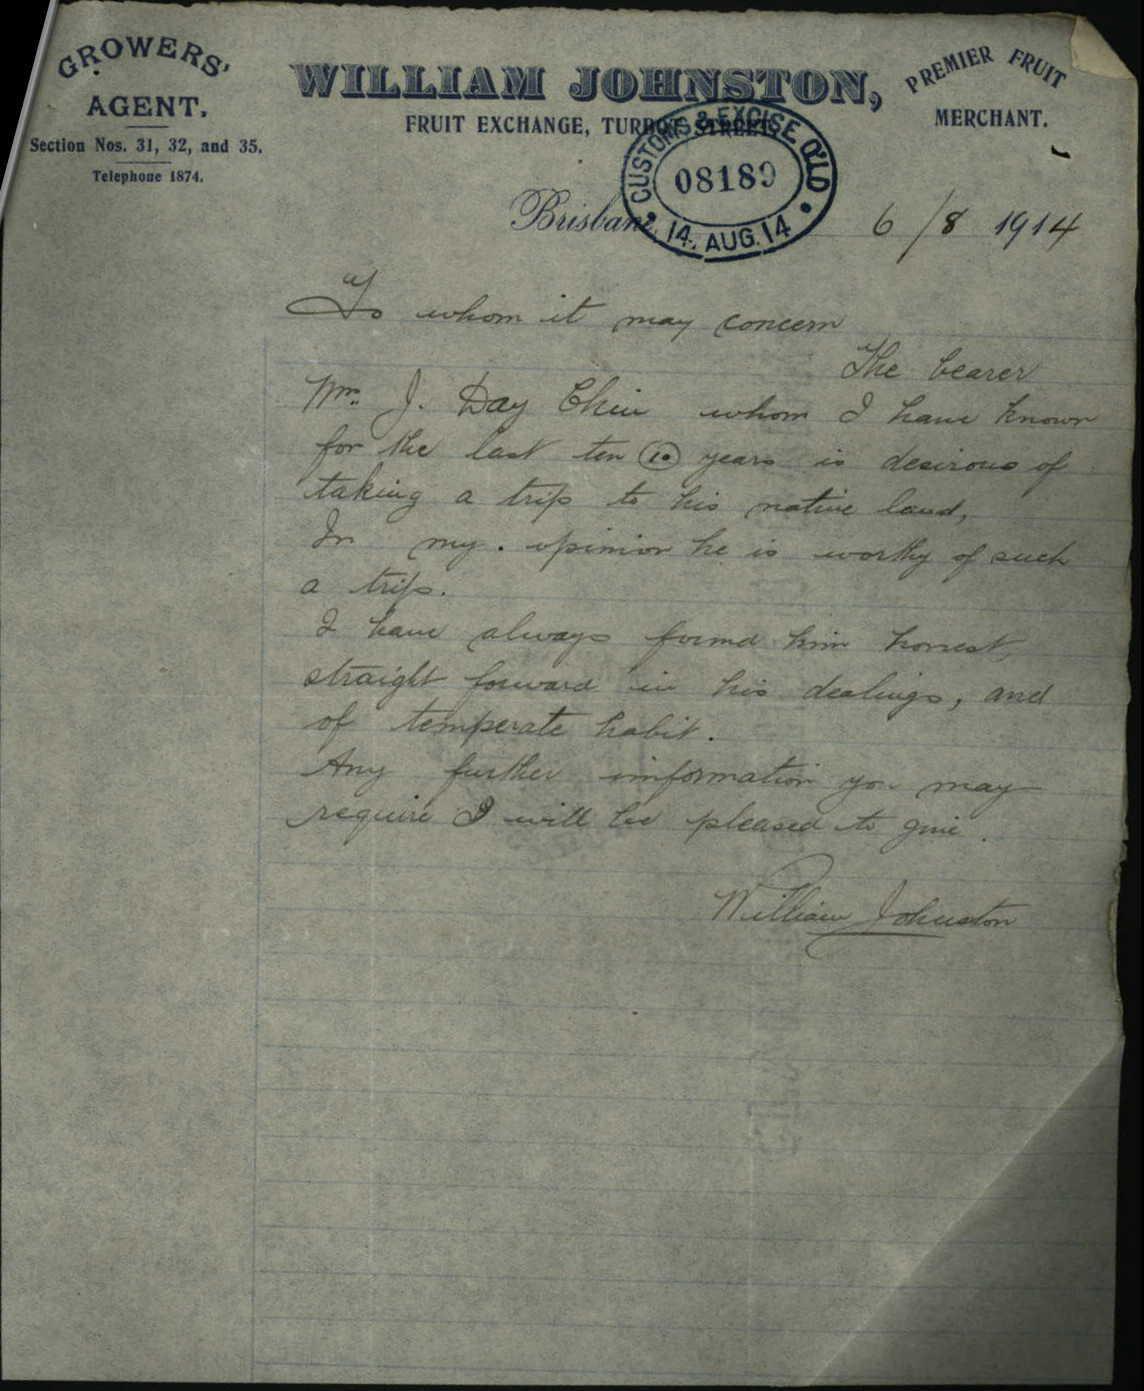 GROWERS'
AGENT.
Section Nos. 31, 32, and 35.
Telephone 1874.
WILLIAM JOHNSTON,
FRUIT EXCHANGE, TURBOT STREET,
PREMIER FRUIT
MERCHANT.
CUSTOMS & EXCISE Q'LD
08189
14. AUG. 14
Brisbane, 6/8 1914
To whom it may concern
The bearer
Mr. J. Day Chin whom I have known
for the last ten (10) years is desirous of
taking a trip to his native land,
In my . opinion he is worthy of such
a trip.
I have always found him honest,
straight forward in his dealings, and
of temperate habit.
Any further imformation you may
require I will be pleased to give.
William Johnston